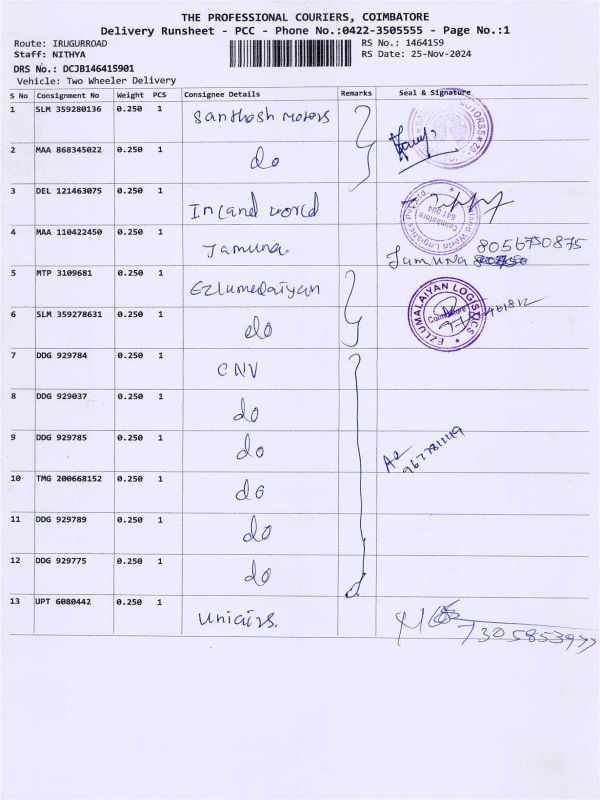 THE PROFESSIONAL COURIERS, COIMBATORE
Delivery Runsheet - PCC - Phone No.:0422-3505555 - Page No.:1
Route: IRUGURROAD RS No.: 1464159
Staff: NITHYA RS Date: 25-Nov-2024
DRS No.: DCJB146415901
Vehicle: Two Wheeler Delivery
S No Consignment No Weight PCS Consignee Details Remarks Seal & Signature
1 SLM 359280136 0.250 1 Santhosh Motors
2 MAA 868345022 0.250 1 do
3 DEL 121463075 0.250 1 Inland world
4 MAA 110422450 0.250 1 Jamuna Jamuna 8056750875
5 MTP 3109681 0.250 1 Ezlumalaiyan
EZLUMALAIYAN LOGISTICS
Coimbatore
6 SLM 359278631 0.250 1 do
7 DDG 929784 0.250 1 CNV
8 DDG 929037 0.250 1 do
9 DDG 929785 0.250 1 do
10 TMG 200668152 0.250 1 do
11 DDG 929789 0.250 1 do
12 DDG 929775 0.250 1 do
13 UPT 6080442 0.250 1 7305853977